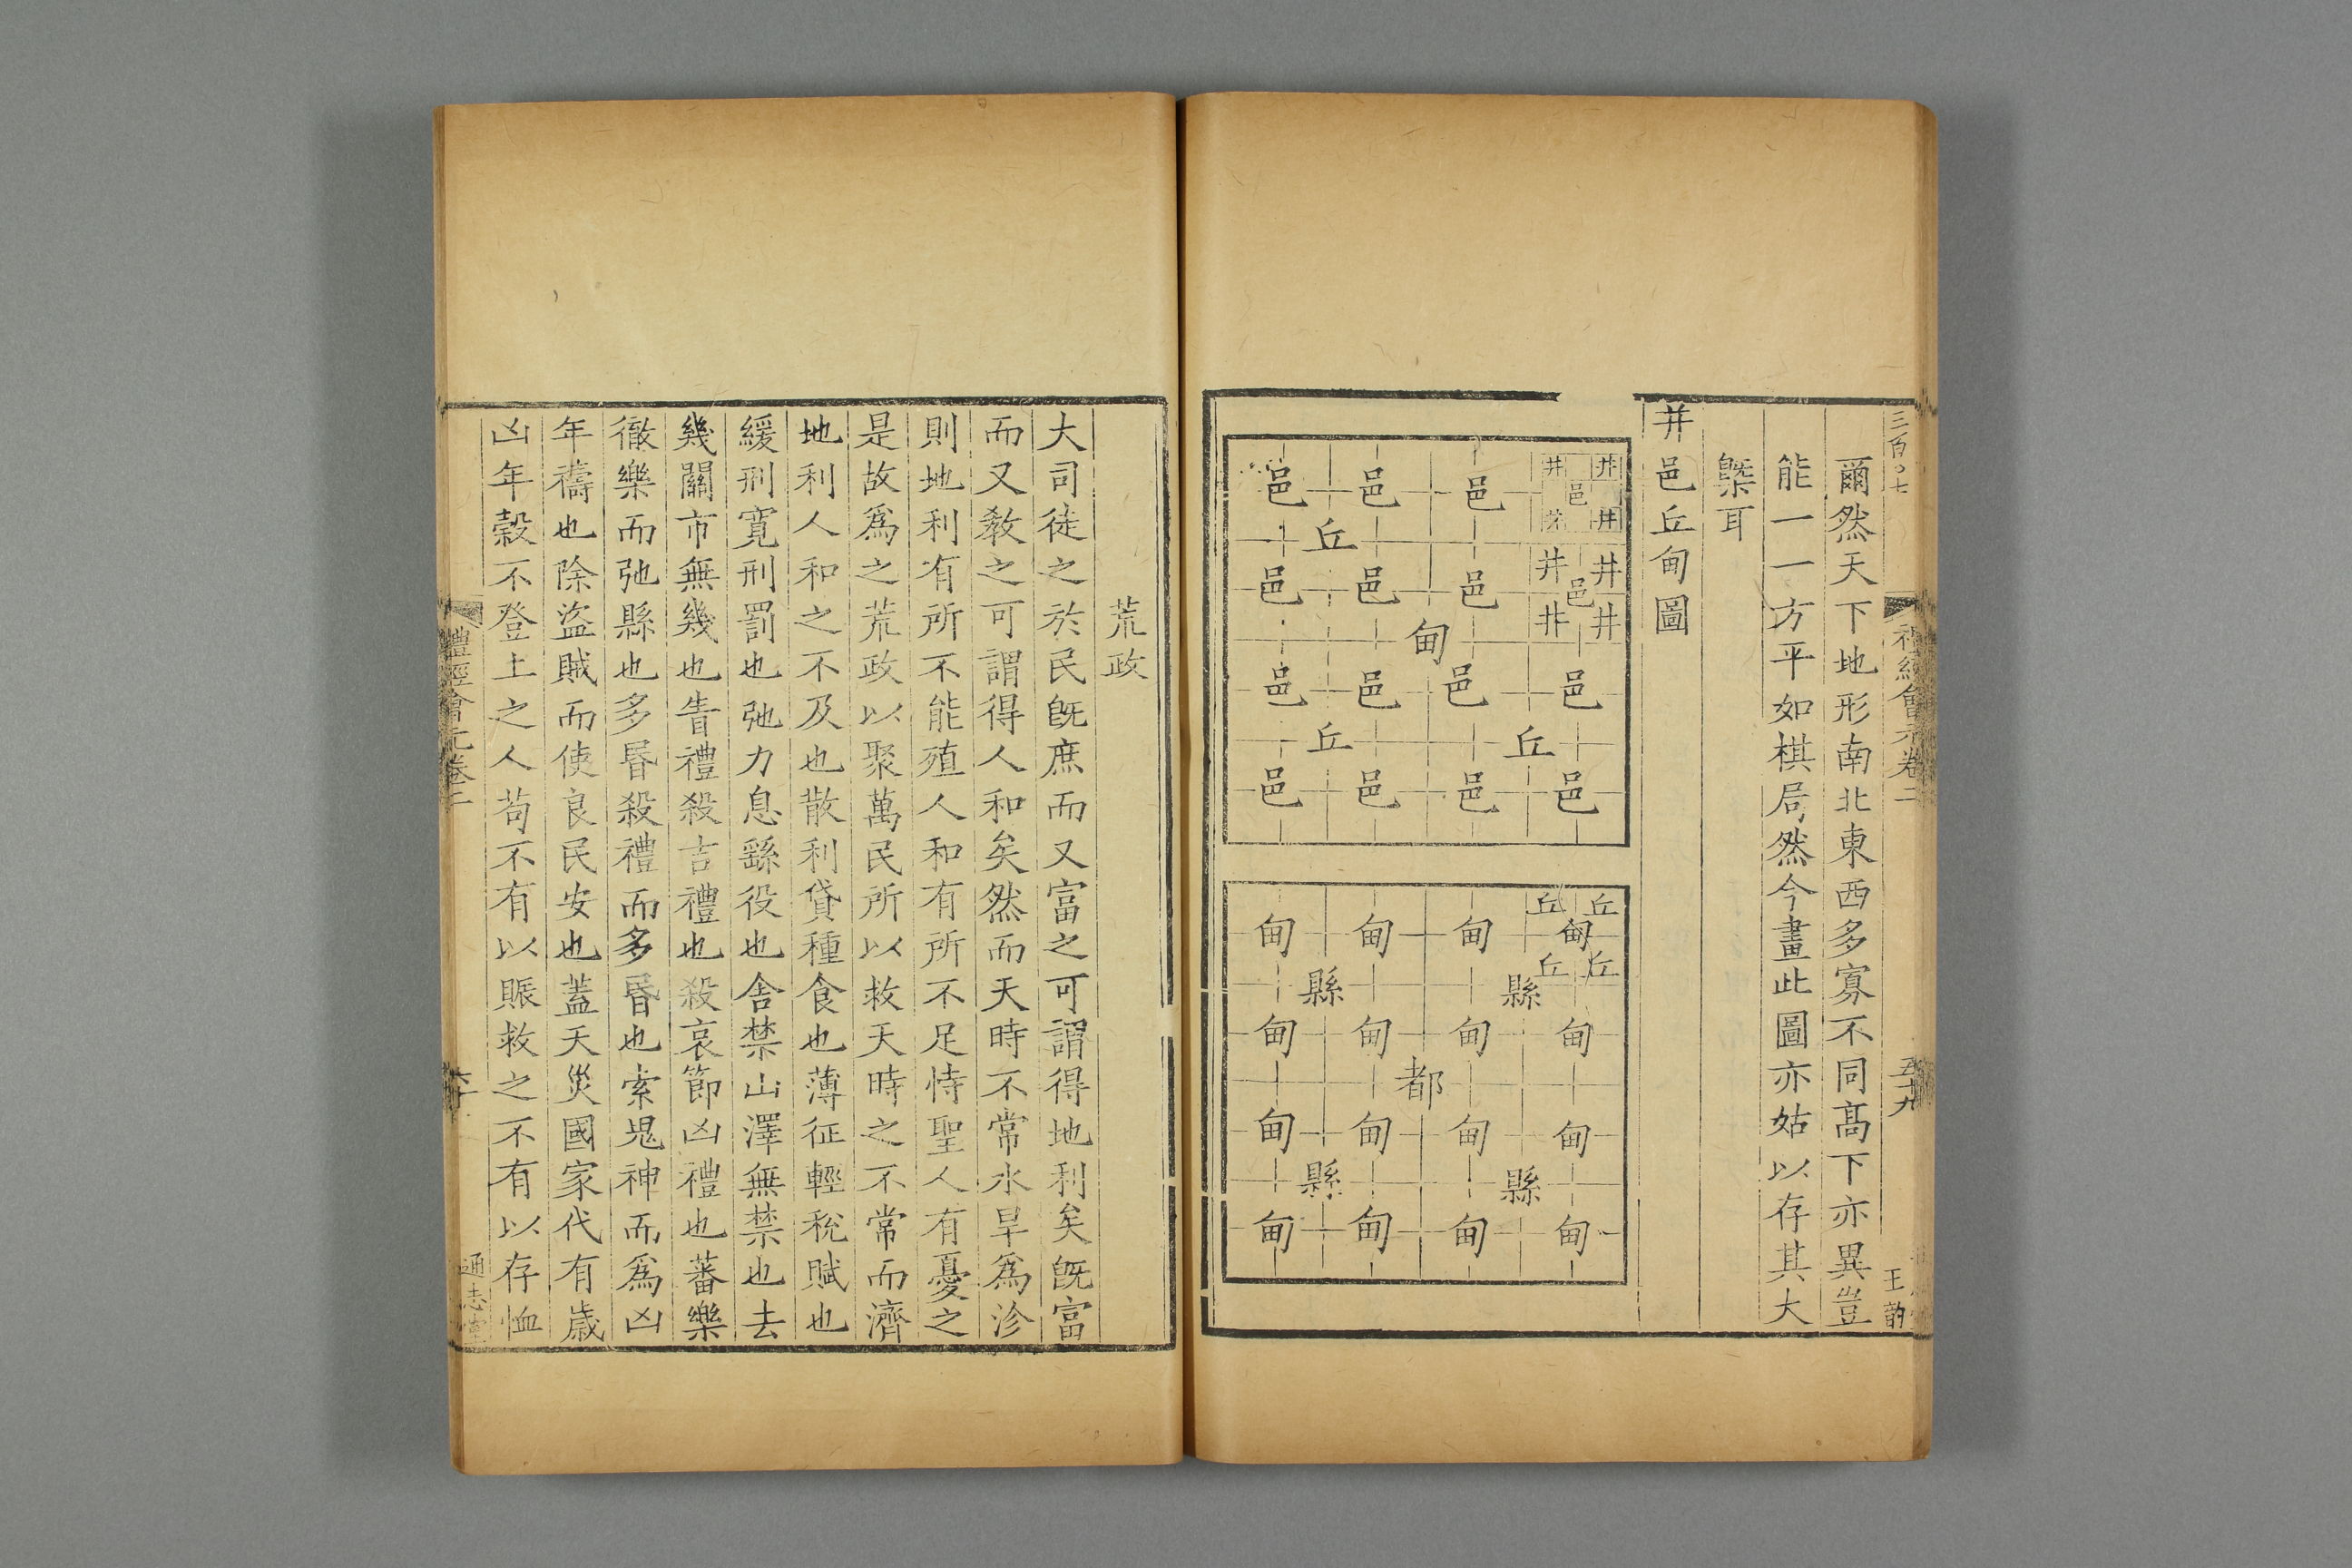 三百〇七
禮經會元卷二
五十九
王韵
爾然天下地形南北東西多寡不同髙下亦異豈
能一一方平如棋局然今畫此圖亦姑以存其大
槩耳
井邑丘甸圖
井 井 邑 邑 邑
邑
井 井
丘
井 井 邑 邑 邑
邑
井 井
甸
邑 邑 邑 邑
丘 丘
邑 邑 邑 邑
丘 丘
甸 甸 甸 甸
丘 丘
縣 縣
甸 甸 甸 甸
都
甸 甸 甸 甸
縣 縣
甸 甸 甸 甸
荒政
大司徒之於民旣庶而又富之可謂得地利矣旣富
而又敎之可謂得人和矣然而天時不常水旱爲沴
則地利有所不能殖人和有所不足恃聖人有憂之
是故爲之荒政以聚萬民所以救天時之不常而濟
地利人和之不及也散利貸種食也薄征輕稅賦也
緩刑寬刑罰也弛力息繇役也舍禁山澤無禁也去
幾關市無幾也眚禮殺吉禮也殺哀節凶禮也蕃樂
徹樂而弛縣也多昬殺禮而多昬也索鬼神而爲凶
年禱也除盜賊而使良民安也蓋天災國家代有歲
凶年穀不登上之人苟不有以賑救之不有以存恤
禮經會元卷二
六十
通志堂